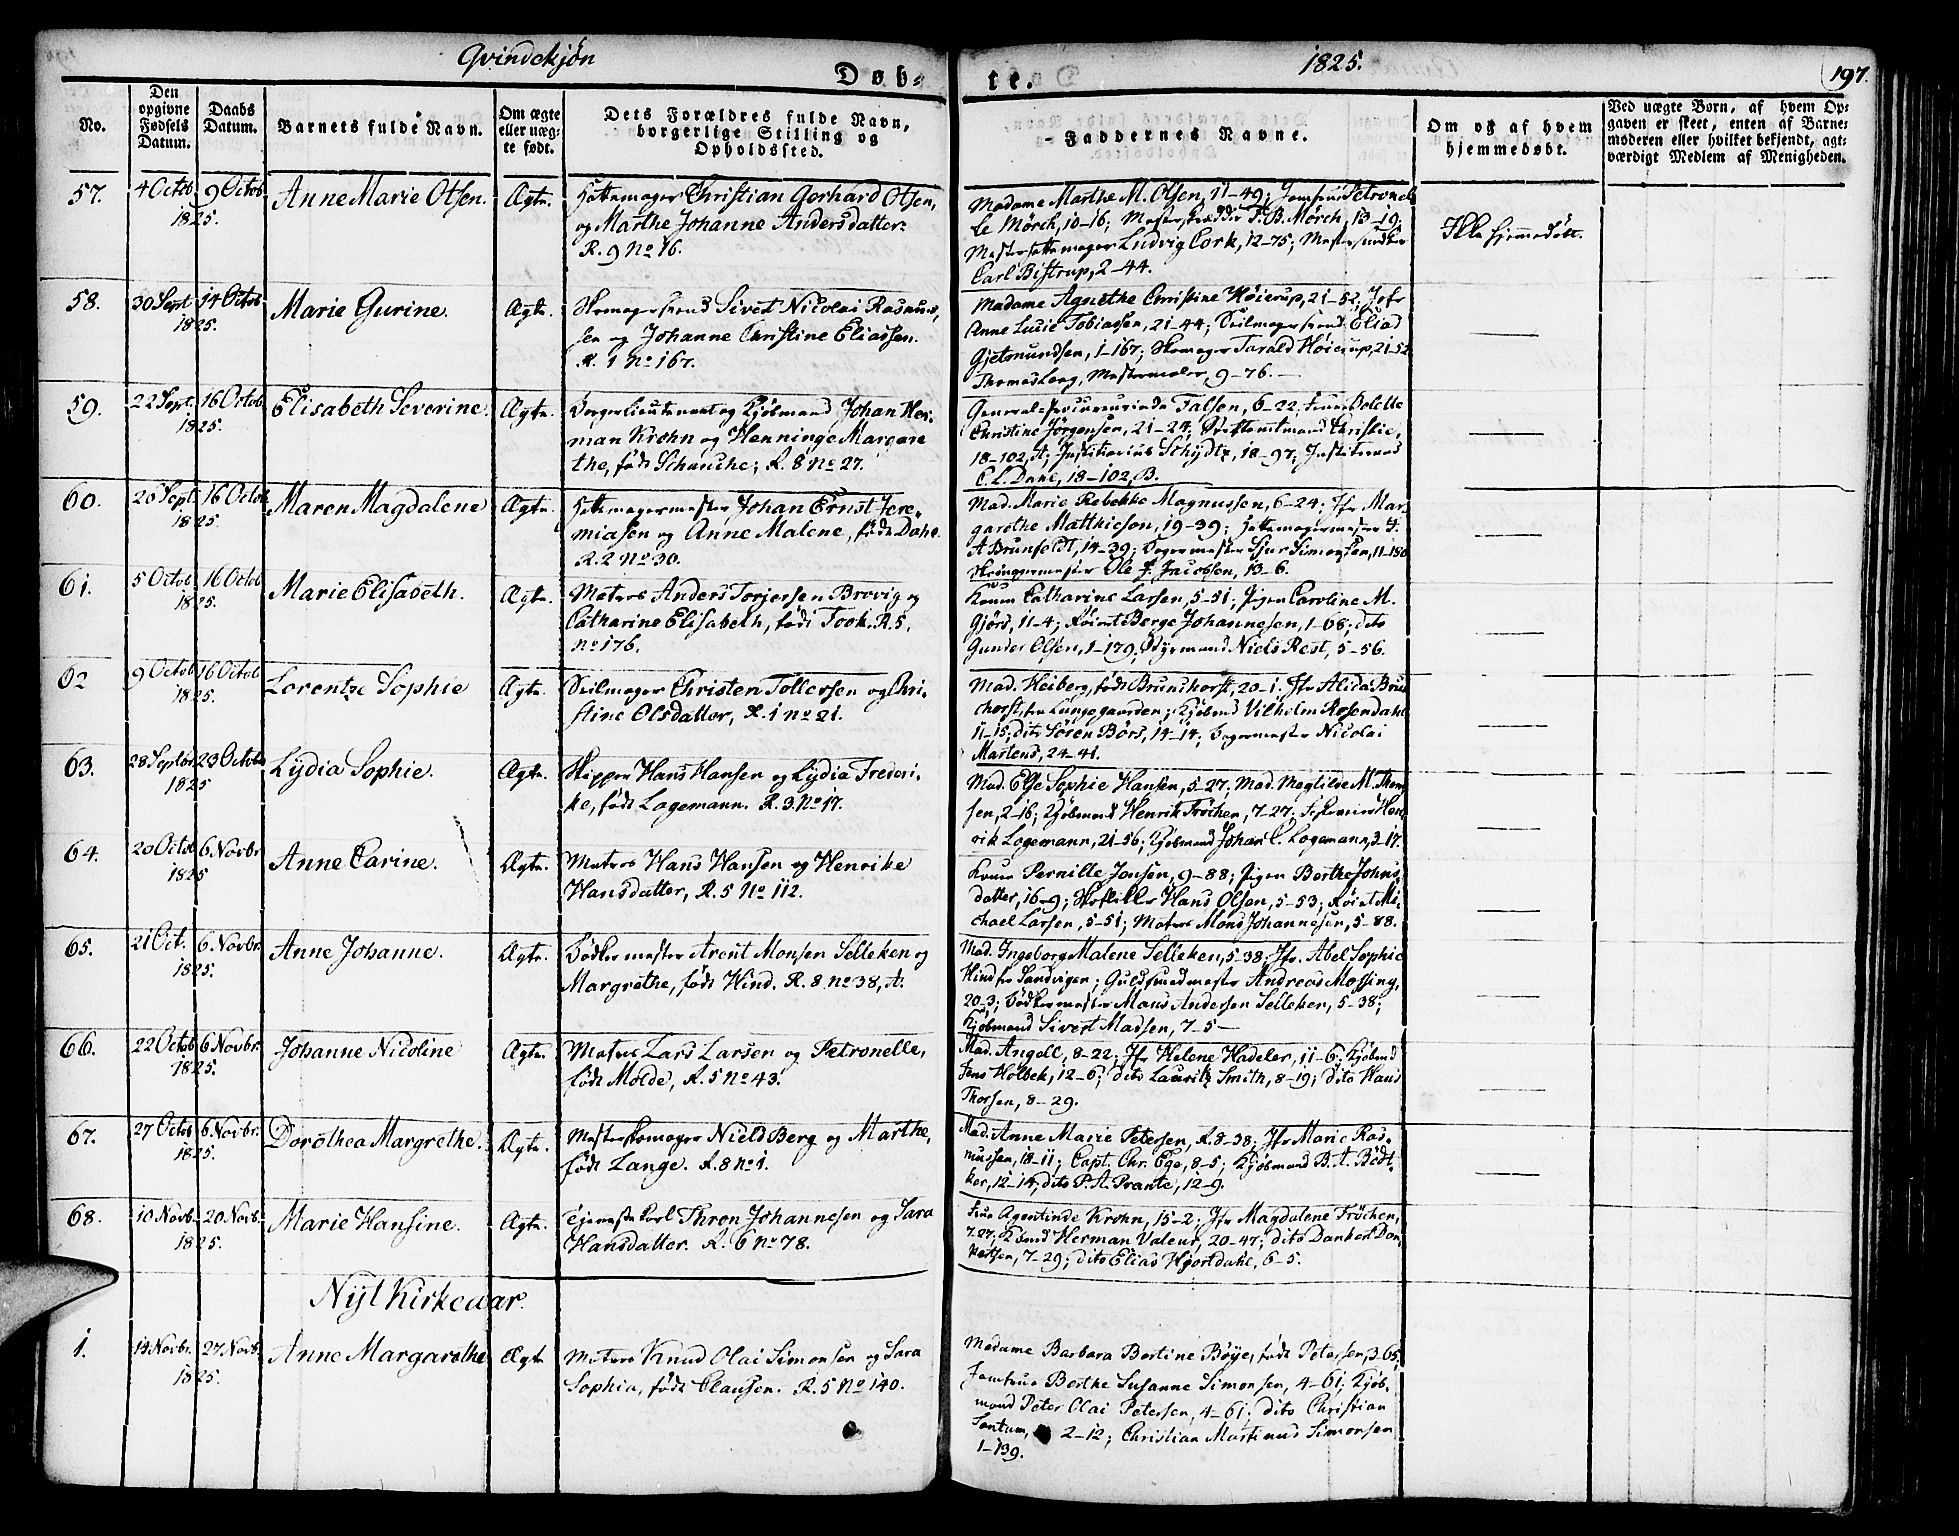 Qvindekjön
Døb-
te.
1825.
197.
No.
Den opgivne Fødsels Datum.
Daabs Datum.
Barnets fulde Navn.
Om ægte eller uægte født.
Dets Forældres fulde Navn, borgerlige Stilling og Opholdssted.
Faddernes Navne.
Om og af hvem hjemmedøbt.
Ved uægte Børn, af hvem Opgaven er skeet, enten af Barnemoderen eller hvilket bekjendt, agtværdigt Medlem af Menigheden.
57.
4 Octob 1825.
9 Octob
Anne Marie Otsen.
Ægte.
Hattemager Christian Gerhard Otsen,
og Marthe Johanne Andersdatter.
R. 9 No 16.
Madame Marthe M. Olsen, 11-49; Jomfru Petronel
le Mörch, 10-16; Mesterskrædder F. B. Mörch, 13-19;
Mesterhattemager Ludvig Cork, 12-75; Mestersnedker
Carl Bistrup, 2-44.
Ikke hjemmedöbt.
58.
30 Sept 1825.
14 Octob
Marie Gurine.
Ægte.
Skomagersvend Sivert Nicolai Rasmus-
sen og Johanne Christine Eliassen.
R. 1 No 167.
Madame Agnethe Christine Höierup, 21-52, Jofr
Anne Lucie Tobiassen, 21-44; Seilmagersvend Elias
Gjetmundsen, 1-167; Skomager Tarald Höierup, 21-52
Thomas Lang, Mestermaler, 9-76.
59.
22 Sept. 1825.
16 Octob
Elisabeth Severine.
Ægte.
Borgerlieutenant og Kjöbmand Johan Her-
man Krohn og Henninge Margare
the, födt Schanche; R. 8 No 27.
General-procureurinde Falsen, 6-22, Frue Bolette
Christine Jörgensen, 21-24; Stiftamtmand Christie,
18-102, A; Justitiarius Schydtz, 18-97; Justitsraad
C. L. Dahe, 18-102, B.
60.
26 Sept. 1825.
16 Octob
Maren Magdalene
Ægte.
Hattemagermester Johan Ernst Jere-
miasen og Anne Malene, födt Dahl.
R. 2 No 30.
Mad. Marie Rebekke Magnussen, 6-24; Jfr Mar-
garethe Matthiesen, 19-39; Hattemagermester
A Brunfeldt, 14-39; Bagermester Sjur Simonsen, 11-180
Ole J. Jacobsen, 13-6.
61.
5 Octob 1825.
16 Octob
Marie Elisabeth.
Ægte.
Matros Anders Torjersen Brovig og
Catharine Elisabeth, födt Took. R. 5,
No 176.
Konen Catharine Larsen, 5-51; Pigen Caroline M.
Gjörs, 11-4; Röiert Berge Johannesen, 1-68; dito
Gunder Olsen, 1-179; Styrmand Niels Rest, 5-56.
62
9 Octob 1825.
16 Octob
Lorentze Sophie
Ægte.
Seilmager Christen Tollersen og Chri-
stine Olsdatter, R. 1 No 21.
Mad. Heiberg, födt Brunchorst, 20-1. Jfr Alida Brun
chorst, fra Lungegaarden; Kjöbmd Vilhelm Rosendahl
11-15; dito Sören Börs, 14-14; Bagermester Nicolai
Martens, 24-41.
63.
28 Septbr. 1825
23 Octob
Lydia Sophie.
Ægte.
Skipper Hans Hansen og Lydia Frederi-
ke, födt Logemann. R. 3. No 17.
Mad. Else Sophie Hansen, 5-27; Mad. Magtilde M. Thom
sen, 2-16; Kjöbmand Henrik Fröchen, 7-27; Hen
rik Logemann, 21-56; Kjöbmand Johan C. Logemann, 3-17.
64.
20 Octob 1825
6 Novbr
Anne Carine.
Ægte.
Matros Hans Hansen og Henrike
Hansdatter, R. 5 No 112.
Konen Pernille Jonsen, 9-88; Pigen Berthe Johns
datter, 16-9; Hans Olsen, 5-53; Röiert Mi-
chael Larsen, 5-51; Matros Mons Johannesen, 5-88.
65.
21 Oct. 1825.
6 Novbr.
Anne Johanne.
Ægte.
Bödkermester Arent Monsen Selleken og
Margrethe, födt Hind. R. 8 No 38, A.
Mad. Ingeborg Malene Selleken, 5-38, Jfr. Abel Sophie
Hind fra Sandvigen; Guldsmedmester Andreas Mossing,
20-3; Bödkermester Mans Andersen Selleken, 5-38;
Kjöbmand Sivert Madsen, 7-5
66.
22 Octob 1825.
6 Novbr.
Johanne Nicoline
Ægte.
Matros Lars Larsen og Petronelle,
födt Molde, R. 5 No 43.
Mad. Angell, 8-22; Jfr Helene Hadeler, 11-6; Kjöbmd
Jens Holbek, 12-6; dito Lauritz Smith, 8-19; dito Hans
Thorsen, 8-29.
67.
27 Octob 1825.
6 Novbr.
Dorothea Margrethe.
Ægte.
Mesterskomager Nield Berg og Marthe,
födt Lange. R. 8 No 1.
Mad. Anne Marie Petersen, R. 8-38; Jfr Marie Ras-
mussen, 18-11; Capt. Chr. Ege, 8-5; Kjöbmand B. A. Bödt-
ker, 12-14, dito P. A. Prante, 12-9.
68.
10 Novb. 1825.
20 Novb.
Marie Hansine.
Ægte.
Tjenestekarl Thron Johannesen og Sara
Hansdatter. R. 6 No 78.
Frue Agentinde Krohn, 15-2; Jfr Magdalene Fröchen,
7-27; Kbmd Herman Valeur, 20-47; dito Dankert Dan
kertsen, 7-29; dito Elias Hjortdahl, 6-5.
Nyt Kirkeaar.
1.
14 Novbr. 1825.
27 Novb.
Anne Margarethe
Ægte
Matros Knud Olai Simonsen og Sara
Sophia, födt Clausen. R. 5 No 140.
Madame Barbara Bertine Böye, födt Petersen, 3-65,
Jomfrue Berthe Susanne Simonsen, 4-61; Kjöb-
mand Peter Olai Petersen, 4-61; dito Christian
Sontum, 2-12; Christian Martinus Simonsen
1-139.